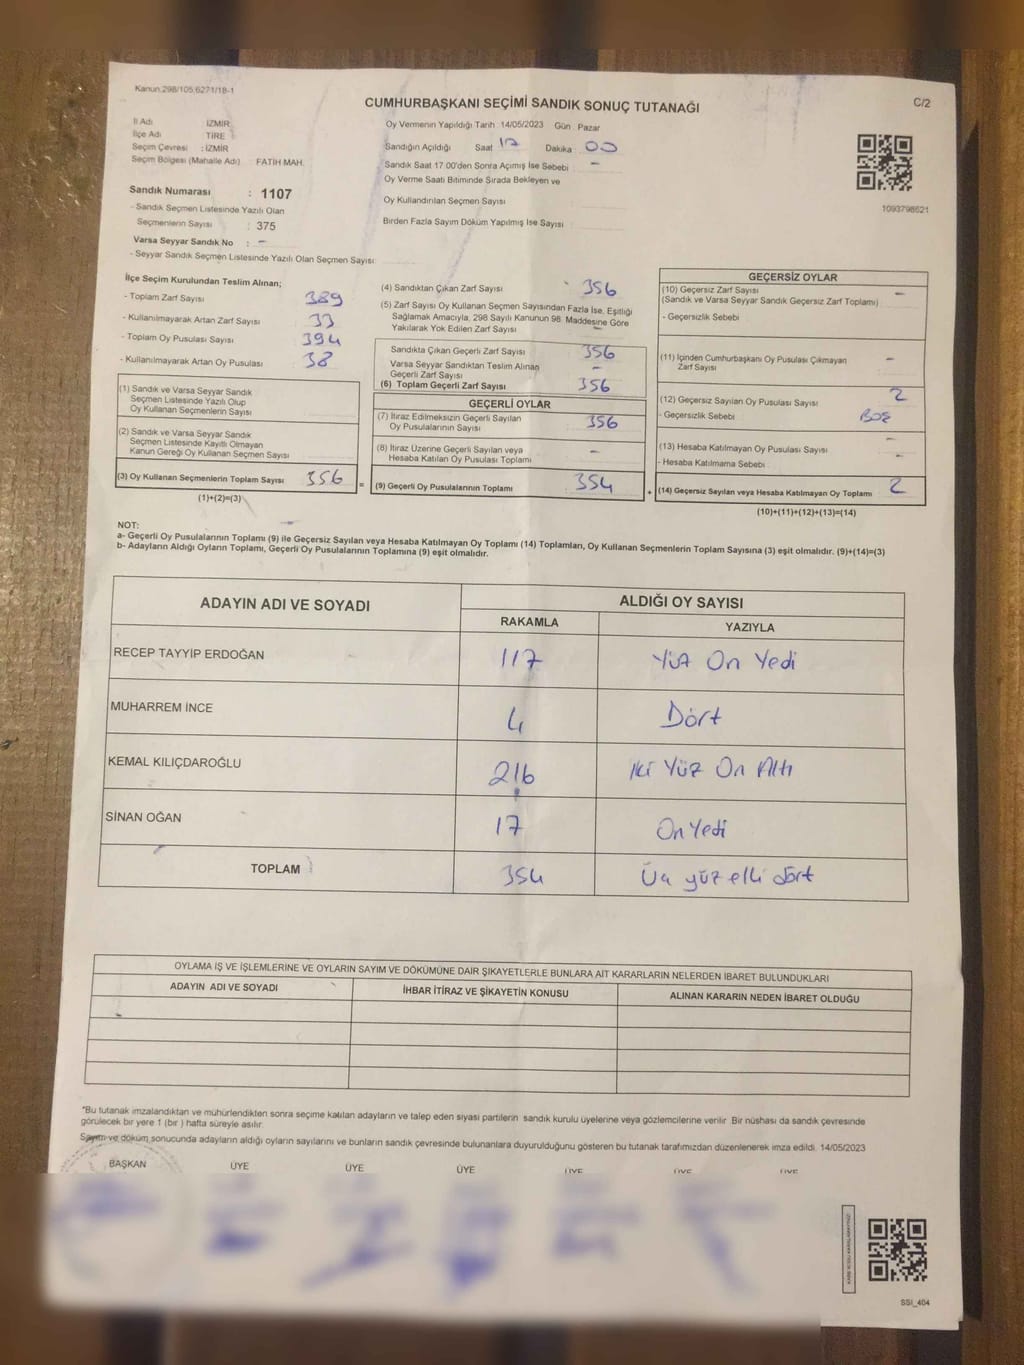 Kanun 298/105;6271/18-1
C/2
CUMHURBAŞKANI SEÇİMİ SANDIK SONUÇ TUTANAĞI
İl Adı İZMİR
İlçe Adı TİRE
Seçim Çevresi : İZMİR
Seçim Bölgesi (Mahalle Adı) FATİH MAH.
Oy Vermenin Yapıldığı Tarih :14/05/2023 Gün : Pazar
Sandığın Açıldığı Saat 17 Dakika : 00
Sandık Saat 17:00'den Sonra Açımış İse Sebebi : -
Oy Verme Saati Bitiminde Sırada Bekleyen ve
Oy Kullandırılan Seçmen Sayısı
Birden Fazla Sayım Döküm Yapılmış İse Sayısı :
1093798621
Sandık Numarası : 1107
- Sandık Seçmen Listesinde Yazılı Olan
Seçmenlerin Sayısı : 375
Varsa Seyyar Sandık No : -
- Seyyar Sandık Seçmen Listesinde Yazılı Olan Seçmen Sayısı:
İlçe Seçim Kurulundan Teslim Alınan;
- Toplam Zarf Sayısı 389
- Kullanılmayarak Artan Zarf Sayısı 33
- Toplam Oy Pusulası Sayısı 394
- Kullanılmayarak Artan Oy Pusulası 38
(1) Sandık ve Varsa Seyyar Sandık
Seçmen Listesinde Yazılı Olup
Oy Kullanan Seçmenlerin Sayısı
(2) Sandık ve Varsa Seyyar Sandık
Seçmen Listesinde Kayıtlı Olmayan
Kanun Gereği Oy Kullanan Seçmen Sayısı
(3) Oy Kullanan Seçmenlerin Toplam Sayısı 356
(1)+(2)=(3)
(4) Sandıktan Çıkan Zarf Sayısı : 356
(5) Zarf Sayısı Oy Kullanan Seçmen Sayısından Fazla İse, Eşitliği
Sağlamak Amacıyla, 298 Sayılı Kanunun 98. Maddesine Göre
Yakılarak Yok Edilen Zarf Sayısı -
Sandıkta Çıkan Geçerli Zarf Sayısı 356
Varsa Seyyar Sandıktan Teslim Alınan
Geçerli Zarf Sayısı -
(6) Toplam Geçerli Zarf Sayısı 356
GEÇERLİ OYLAR
(7) İtiraz Edilmeksizin Geçerli Sayılan
Oy Pusulalarının Sayısı 356
(8) İtiraz Üzerine Geçerli Sayılan veya
Hesaba Katılan Oy Pusulası Toplamı -
= (9) Geçerli Oy Pusulalarının Toplamı 354
GEÇERSİZ OYLAR
(10) Geçersiz Zarf Sayısı -
(Sandık ve Varsa Seyyar Sandık Geçersiz Zarf Toplamı)
- Geçersizlik Sebebi
(11) İçinden Cumhurbaşkanı Oy Pusulası Çıkmayan
Zarf Sayısı -
(12) Geçersiz Sayılan Oy Pusulası Sayısı 2
- Geçersizlik Sebebi BOŞ
(13) Hesaba Katılmayan Oy Pusulası Sayısı -
- Hesaba Katılmama Sebebi -
+ (14) Geçersiz Sayılan veya Hesaba Katılmayan Oy Toplamı 2
(10)+(11)+(12)+(13)=(14)
NOT:
a- Geçerli Oy Pusulalarının Toplamı (9) ile Geçersiz Sayılan veya Hesaba Katılmayan Oy Toplamı (14) Toplamları, Oy Kullanan Seçmenlerin Toplam Sayısına (3) eşit olmalıdır. (9)+(14)=(3)
b- Adayların Aldığı Oyların Toplamı, Geçerli Oy Pusulalarının Toplamına (9) eşit olmalıdır.
ADAYIN ADI VE SOYADI
ALDIĞI OY SAYISI
RAKAMLA YAZIYLA
RECEP TAYYİP ERDOĞAN 117 Yüz On Yedi
MUHARREM İNCE 4 Dört
KEMAL KILIÇDAROĞLU 216 İki Yüz On Altı
SİNAN OĞAN 17 On Yedi
TOPLAM 354 Üç yüz elli dört
OYLAMA İŞ VE İŞLEMLERİNE VE OYLARIN SAYIM VE DÖKÜMÜNE DAİR ŞİKAYETLERLE BUNLARA AİT KARARLARIN NELERDEN İBARET BULUNDUKLARI
ADAYIN ADI VE SOYADI İHBAR İTİRAZ VE ŞİKAYETİN KONUSU ALINAN KARARIN NEDEN İBARET OLDUĞU
"Bu tutanak imzalandıktan ve mühürlendikten sonra seçime katılan adayların ve talep eden siyasi partilerin sandık kurulu üyelerine veya gözlemcilerine verilir. Bir nüshası da sandık çevresinde
görülecek bir yere 1 (bir ) hafta süreyle asılır.
Sayım ve döküm sonucunda adayların aldığı oyların sayılarını ve bunların sandık çevresinde bulunanlara duyurulduğunu gösteren bu tutanak tarafımızdan düzenlenerek imza edildi. 14/05/2023
BAŞKAN ÜYE ÜYE ÜYE ÜYE ÜYE ÜYE
SSI_404